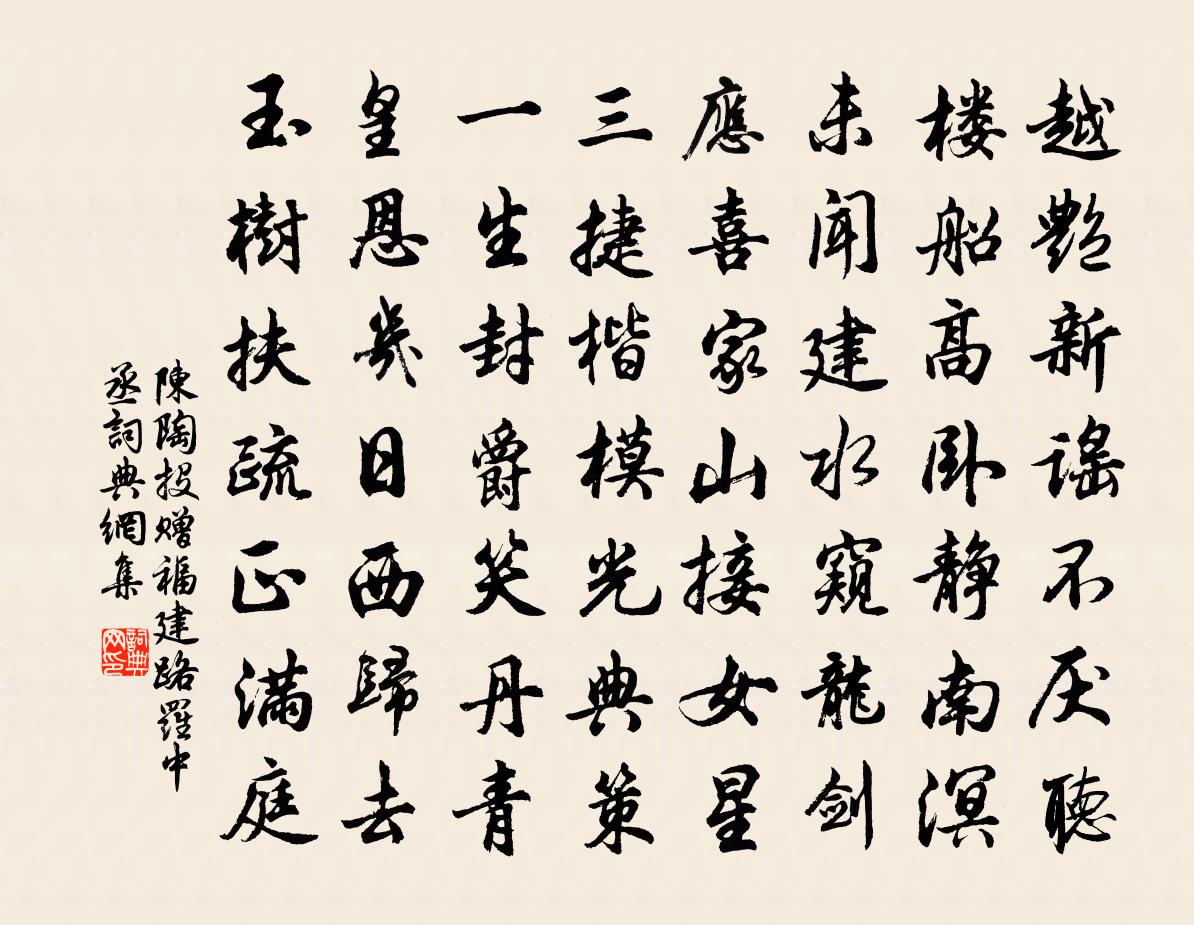 越艷新謠不厌聽
楼船高卧静南溟
未闻建水窺龍剑
應喜家山接女星
三捷楷模光典策
一生封爵笑丹青
皇恩幾日西歸去
玉樹扶疏正满庭
陳陶投赠福建路羅中
丞詞典網集
詞典
网印